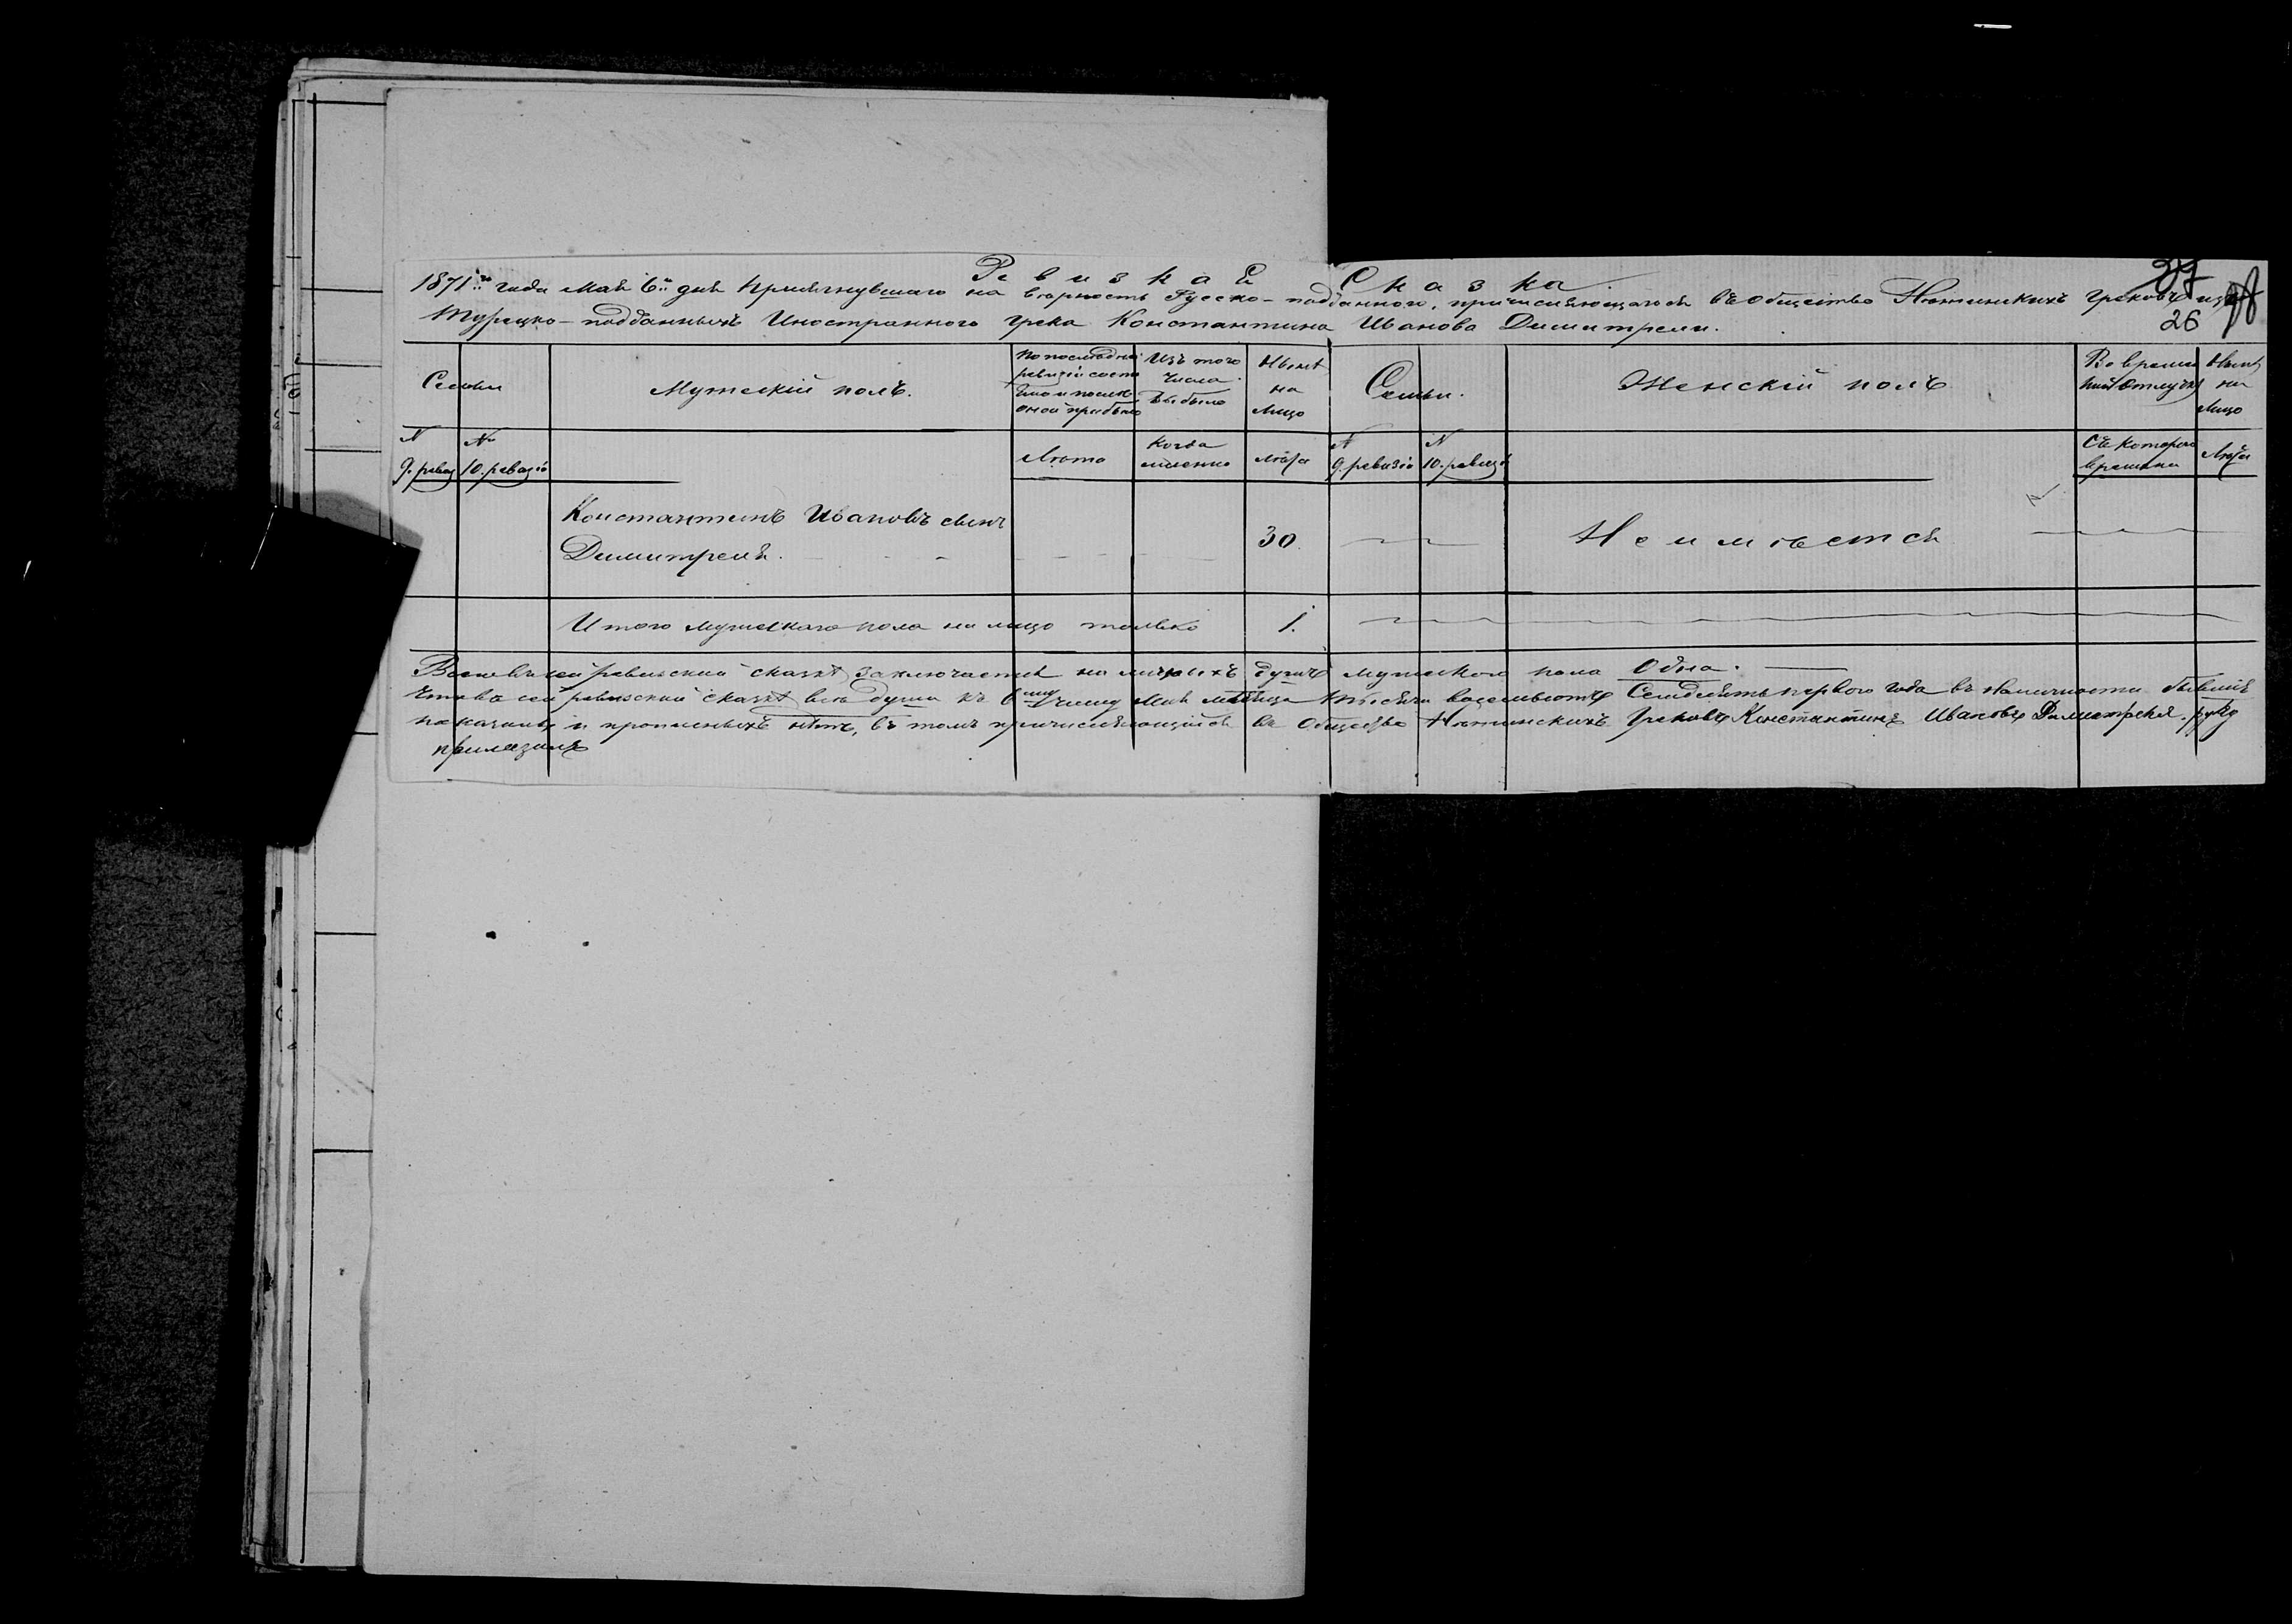 Ревизкаѣ Сказка.
37
1871го года Маѣ 6го днѣ Присѣгнувшаго на вѣрность Русско-подданного, причисляющагося въ общество Нѣжинскихъ Грековъ изъ
26
Турецко-подданныхъ Иностранного Грека Константина Иванова Димитрели.
Семьи
Мужескій полъ.
По последней ревизіи состояло и после оной прибыло
Изъ того числа выбыло
Нынѣ на лицо
Семьи.
Женскій полъ
Во временной отлучкѣ
Нынѣ на лицо
N 9. ревиз
N 10. ревизіи
Лѣта
Когда именно
лѣта
N 9. ревизіи
N 10. ревизіи
Съ котораго времени
Лѣта
Константинъ Ивановъ сынъ
Димитрели.
30
Не имѣется
Итого мужескаго пола на лицо только
1.
Всего въ сей ревизской сказкѣ заключается на личныхъ душъ мужеского пола Одна.
Что въ сей ревизской сказкѣ всѣ души къ 6му числу Маѣ месѣца тысѣча восемьсотъ Семдесѣтъ первого года въ наличности бывшіе
показаны и прописныхъ нѣтъ, въ томъ причисляющійся въ общество Нѣжинскихъ Грековъ Константинъ Ивановъ Димитрели. руку
приложилъ